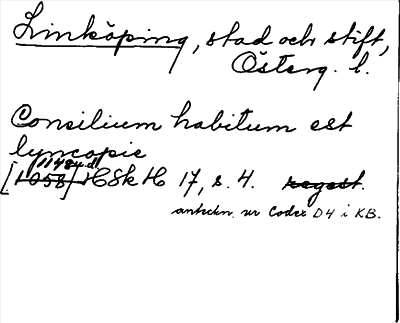 Linköping, stad och stift,
Österg. l.
Consilium habitum est
lyncopie
1148 u.d.
[1058] HSkH 17, s. 4. regest.
anteckn. ur Codex D4 i KB.